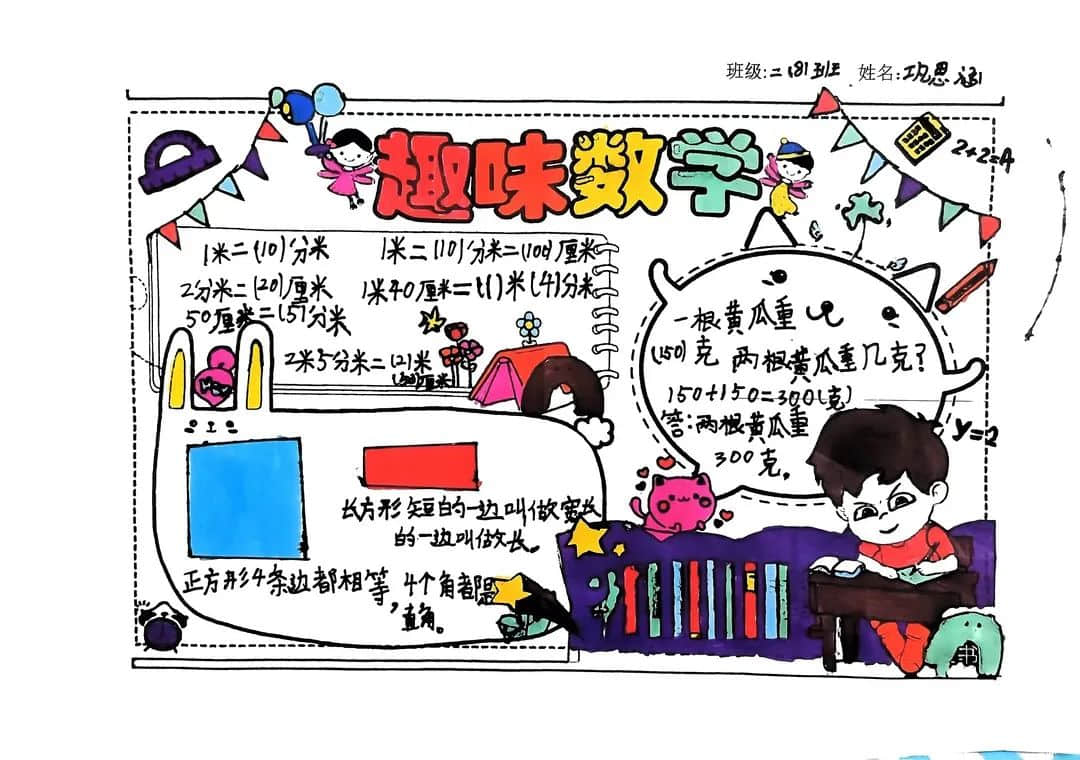 班级:二(8)班 姓名:巩思涵
趣味数学
2+2=4
1米=(10)分米 1米=(10)分米=(100)厘米
2分米=(20)厘米 1米40厘米=(1)米(4)分米
50厘米=(5)分米
2米5分米=(2)米
(50)厘米
一根黄瓜重
(150)克 两根黄瓜重几克?
150+150=300(克)
答:两根黄瓜重
300克。
y=2
长方形短的一边叫做宽长
的一边叫做长。
正方形4条边都相等,4个角都是
直角。
书